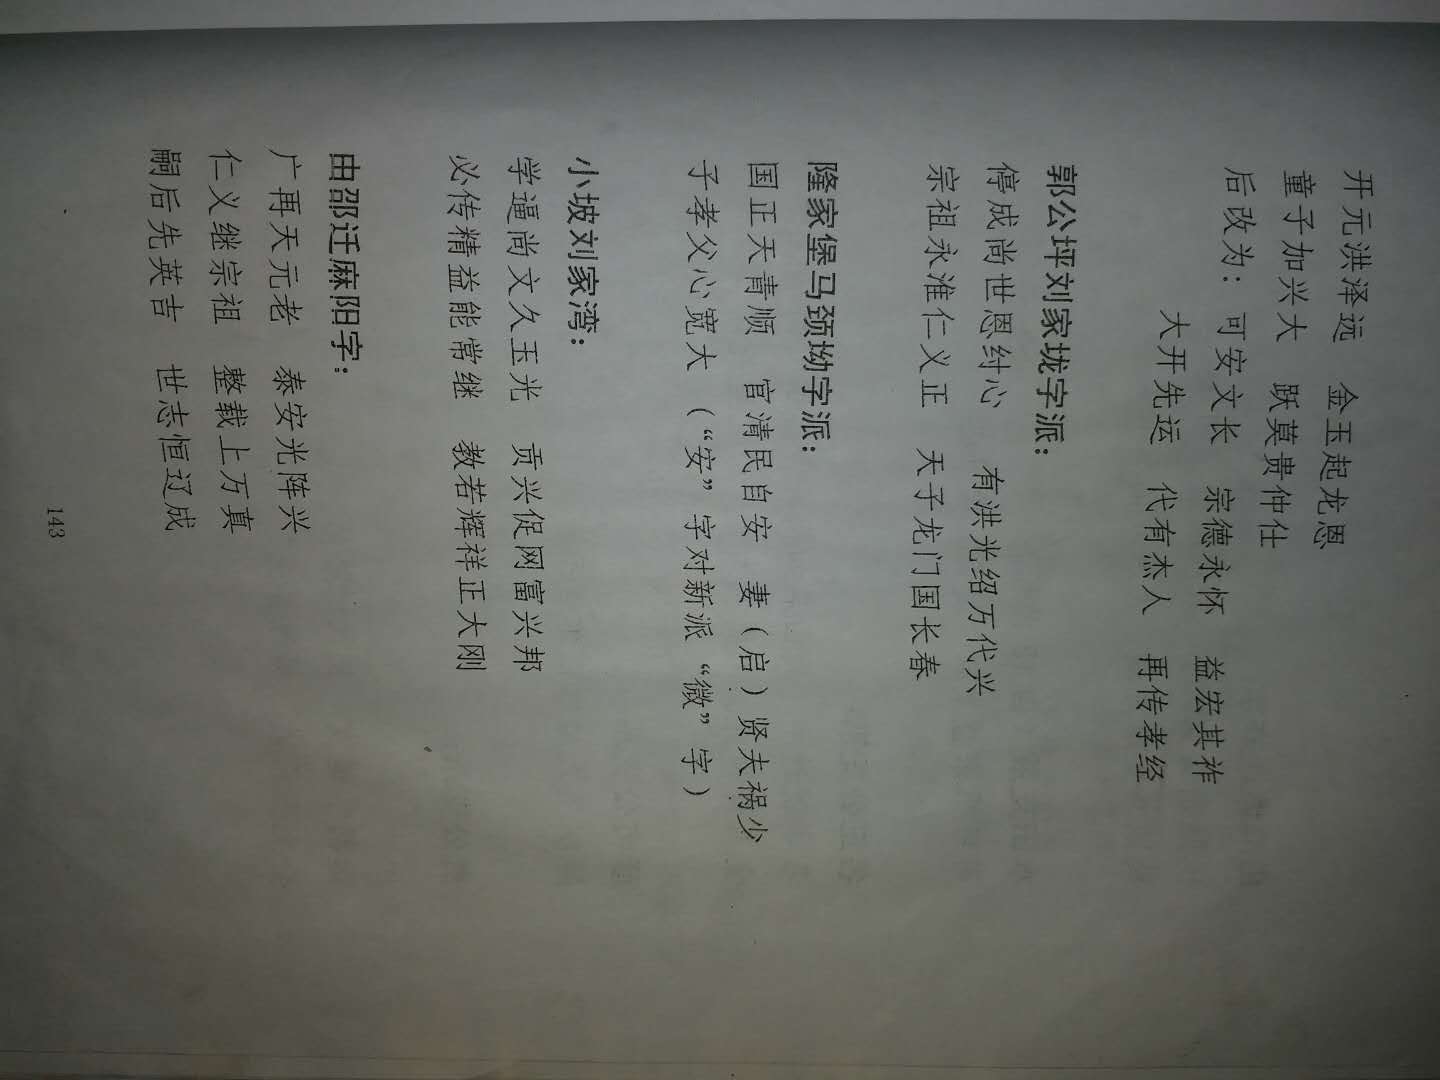 开元洪泽远　金玉起龙恩
童子加兴大　跃莫贵仲仕
后改为：可安文长　宗德永怀　益宏其祚
大开先运　代有杰人　再传孝经
郭公坪刘家垅字派：
停成尚世恩纣心　有洪光绍万代兴
宗祖永淮仁义正　天子龙门国长春
隆家堡马颈坳字派：
国正天青顺　官清民自安　妻（启）贤夫祸少
子孝父心宽大（“安”字对新派“微”字）
小坡刘家湾：
学逼尚文久玉光　贡兴促网富兴邦
必传精益能常继　教若辉祥正大刚
由邵迁麻阳字：
广再天元老　泰安光阵兴
仁义继宗祖　整载上万真
嗣后先英吉　世志恒辽成
143